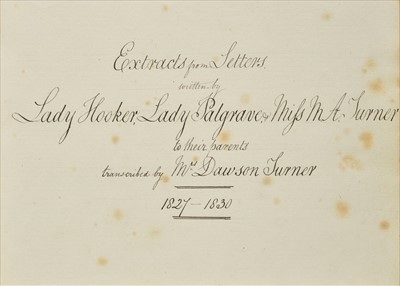 Extracts from Letters
written by
Lady Hooker, Lady Palgrave & Miss M A. Turner
to their parents
transcribed by Mr. Dawson Turner
1827 - 1830